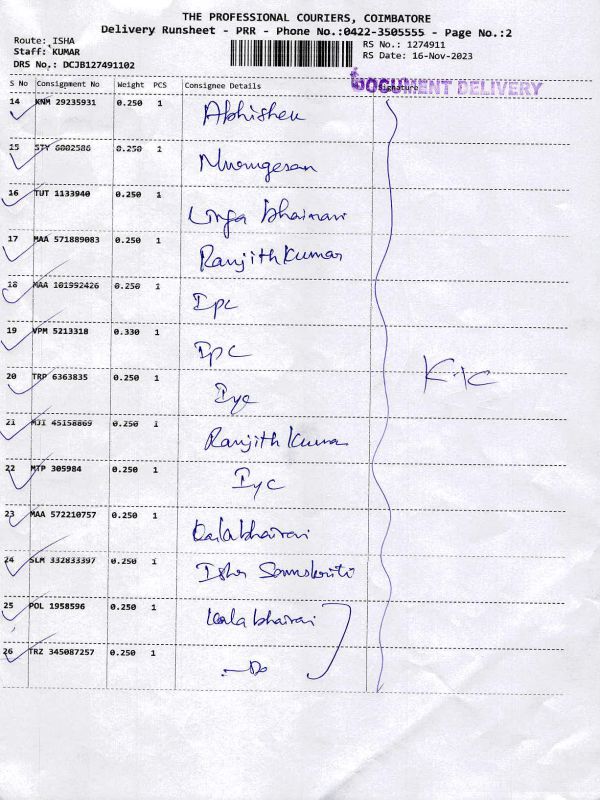 THE PROFESSIONAL COURIERS, COIMBATORE
Delivery Runsheet - PRR - Phone No.:0422-3505555 - Page No.:2
Route: ISHA
Staff: KUMAR
DRS No.: DCJB127491102
RS No.: 1274911
RS Date: 16-Nov-2023
DOCUMENT DELIVERY
S No Consignment No Weight PCS Consignee Details Signature
14 KNM 29235931 0.250 1 Abhishek
15 STY 6002586 0.250 1 Murugesan
16 TUT 1133940 0.250 1 Linga Bhairavi
17 MAA 571889083 0.250 1 Ranjith Kumar
18 MAA 101992426 0.250 1 Ipc
19 VPM 5213318 0.330 1 Ipc
20 TRP 6363835 0.250 1 Iyc
21 MJI 45158869 0.250 1 Ranjith Kumar
22 MTP 305984 0.250 1 Iyc
23 MAA 572210757 0.250 1 Kalabhairavi
24 SLM 332833397 0.250 1 Isha Samskriti
25 POL 1958596 0.250 1 Kalabhairavi
26 TRZ 345087257 0.250 1 Do